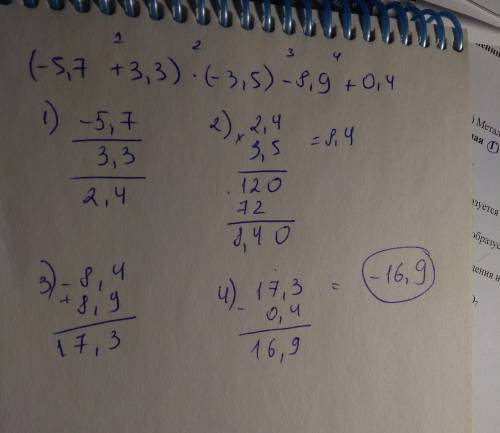 1 2 3 4
(-5,7 + 3,3) · (-3,5) - 8,9 + 0,4
1) -5,7
3,3
2,4
2) × 2,4
3,5
120
72
8,40
= 8,4
3) - 8,4
+ 8,9
17,3
4) - 17,3
0,4
16,9
= -16,9
) Метал
ная